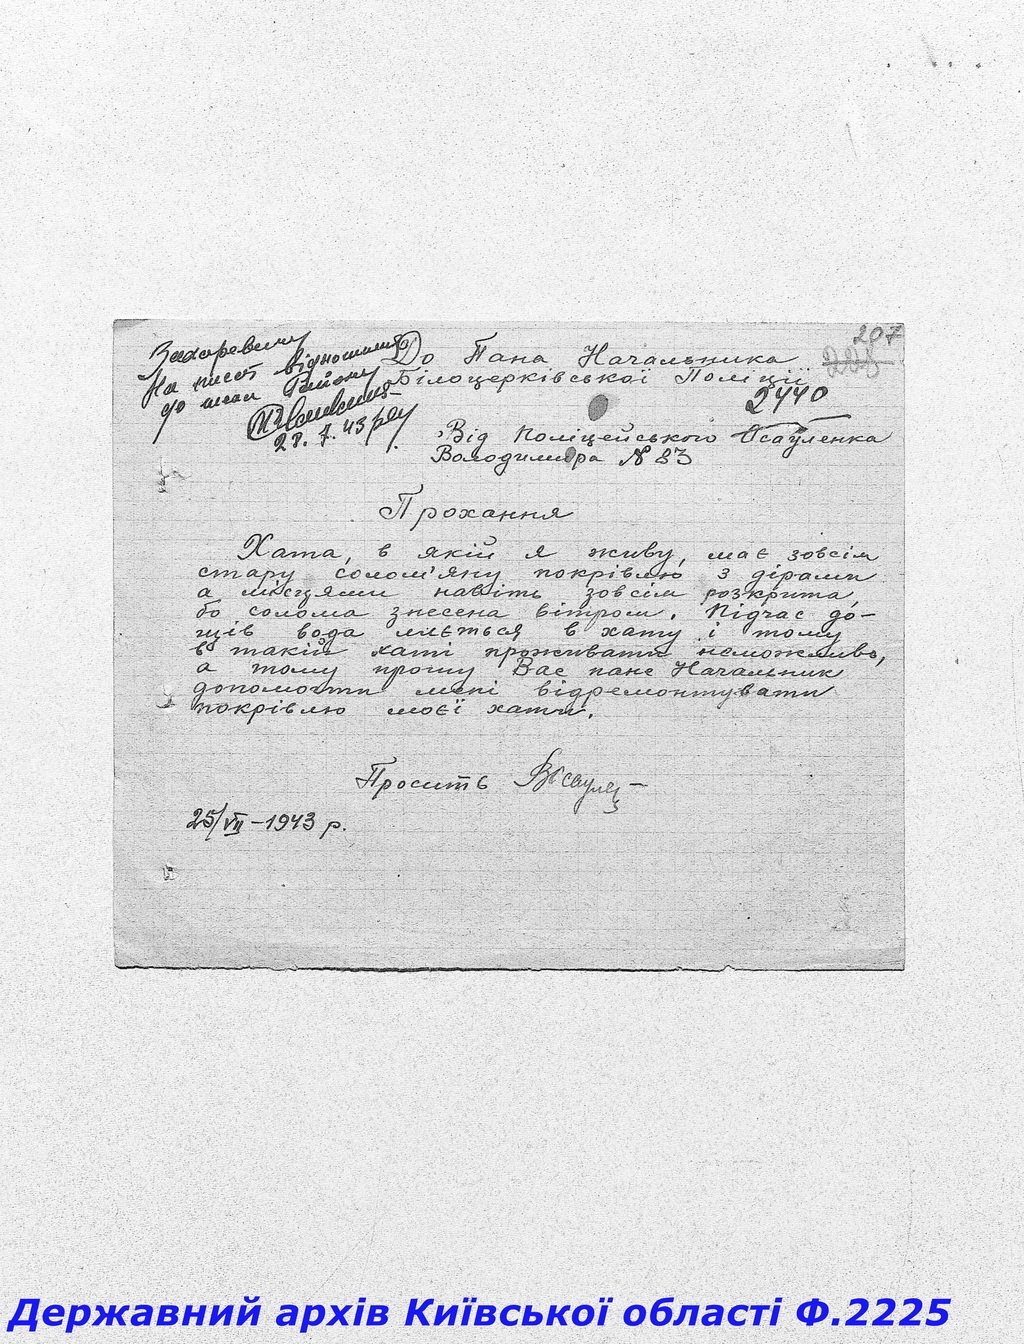 207
До Пана Начальника
Білоцерківської Поліції
2440
Від Поліцейського Осауленка
Володимира N 83
На лист
до
28. 7. 43 р
Прохання
Хата, в якій я живу, має зовсім
стару солом'яну покрівлю з дірами
а місцями навіть зовсім розкрита,
бо солома знесена вітром. Підчас до-
щів вода ллється в хату і тому
в такій хаті проживати неможливо,
а тому прошу Вас пане Начальник
допомогти мені відремонтувати
покрівлю моєї хати.
Просить
25/VII – 1943 р.
Державний архів Київської області Ф.2225